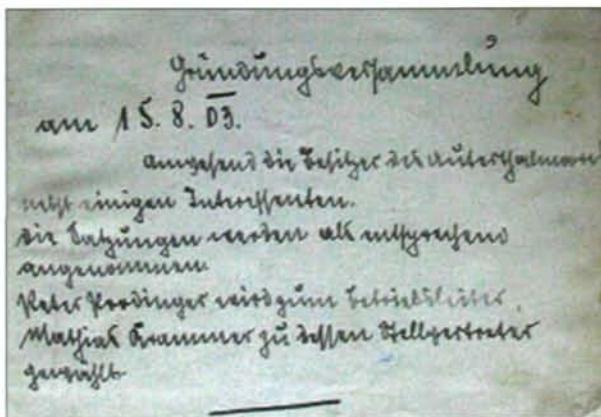 Gründungsversammlung
am 15. 8. 03.
anwesend die Besitzer des Auerthalmann
nebst einigen Interessenten.
Die Satzungen werden als entsprechend
angenommen.
Peter Prodinger wird zum Betriebsleiter,
Mathias Krammer zu dessen Stellvertreter
gewählt.